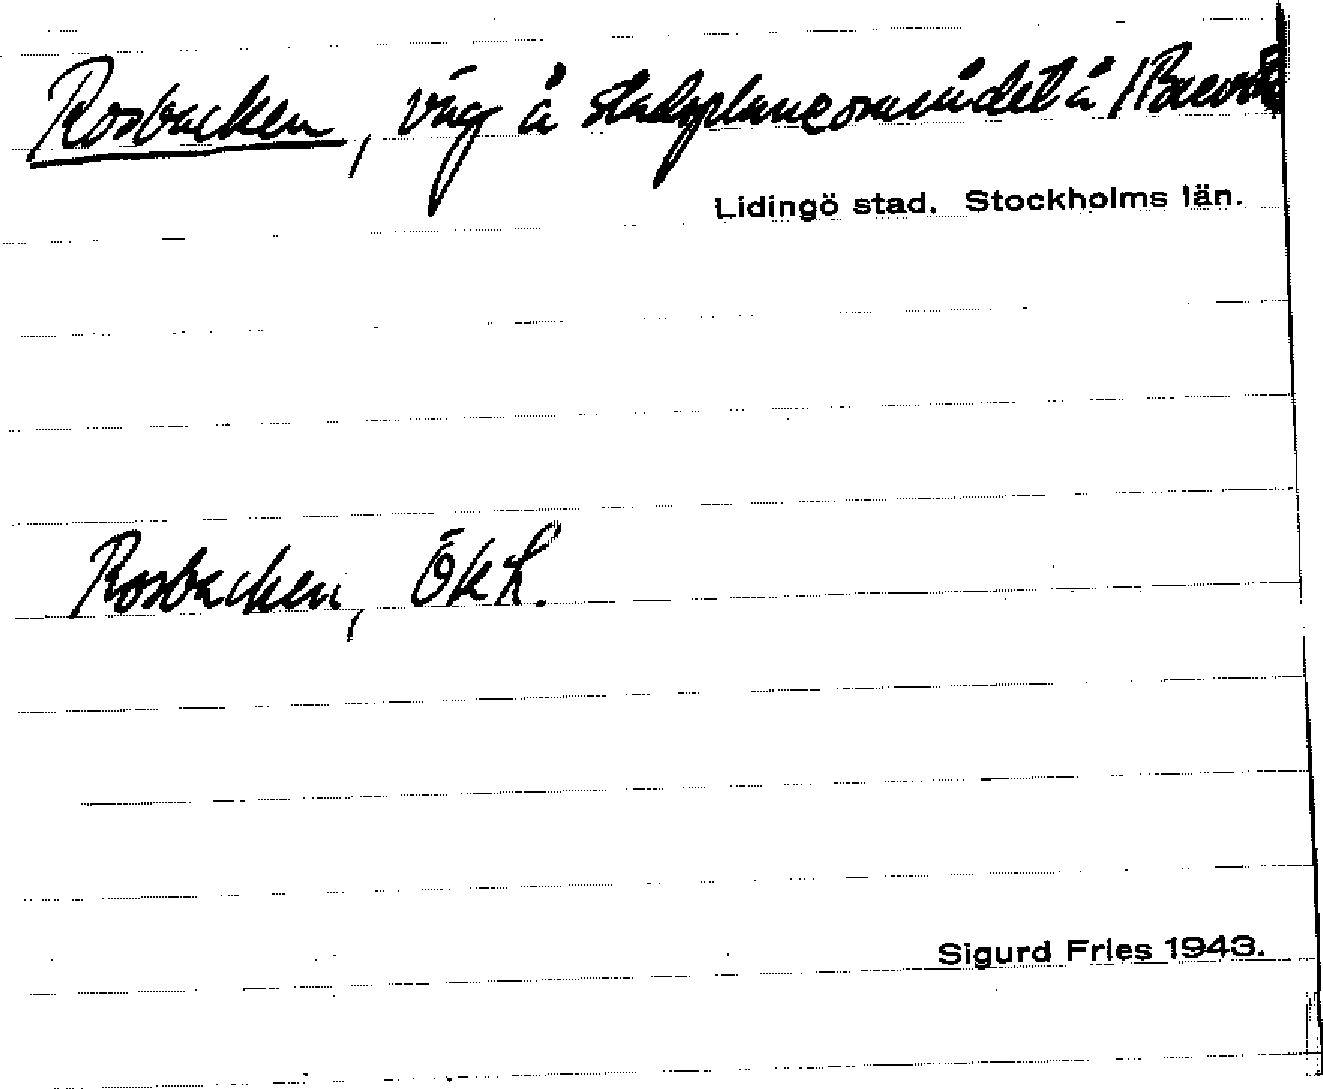 Rosbacken, väg å stadsplaneområdet å /Brevik
Lidingö stad. Stockholms län.
Rosbacken, ÖkL.
Sigurd Fries 1943.